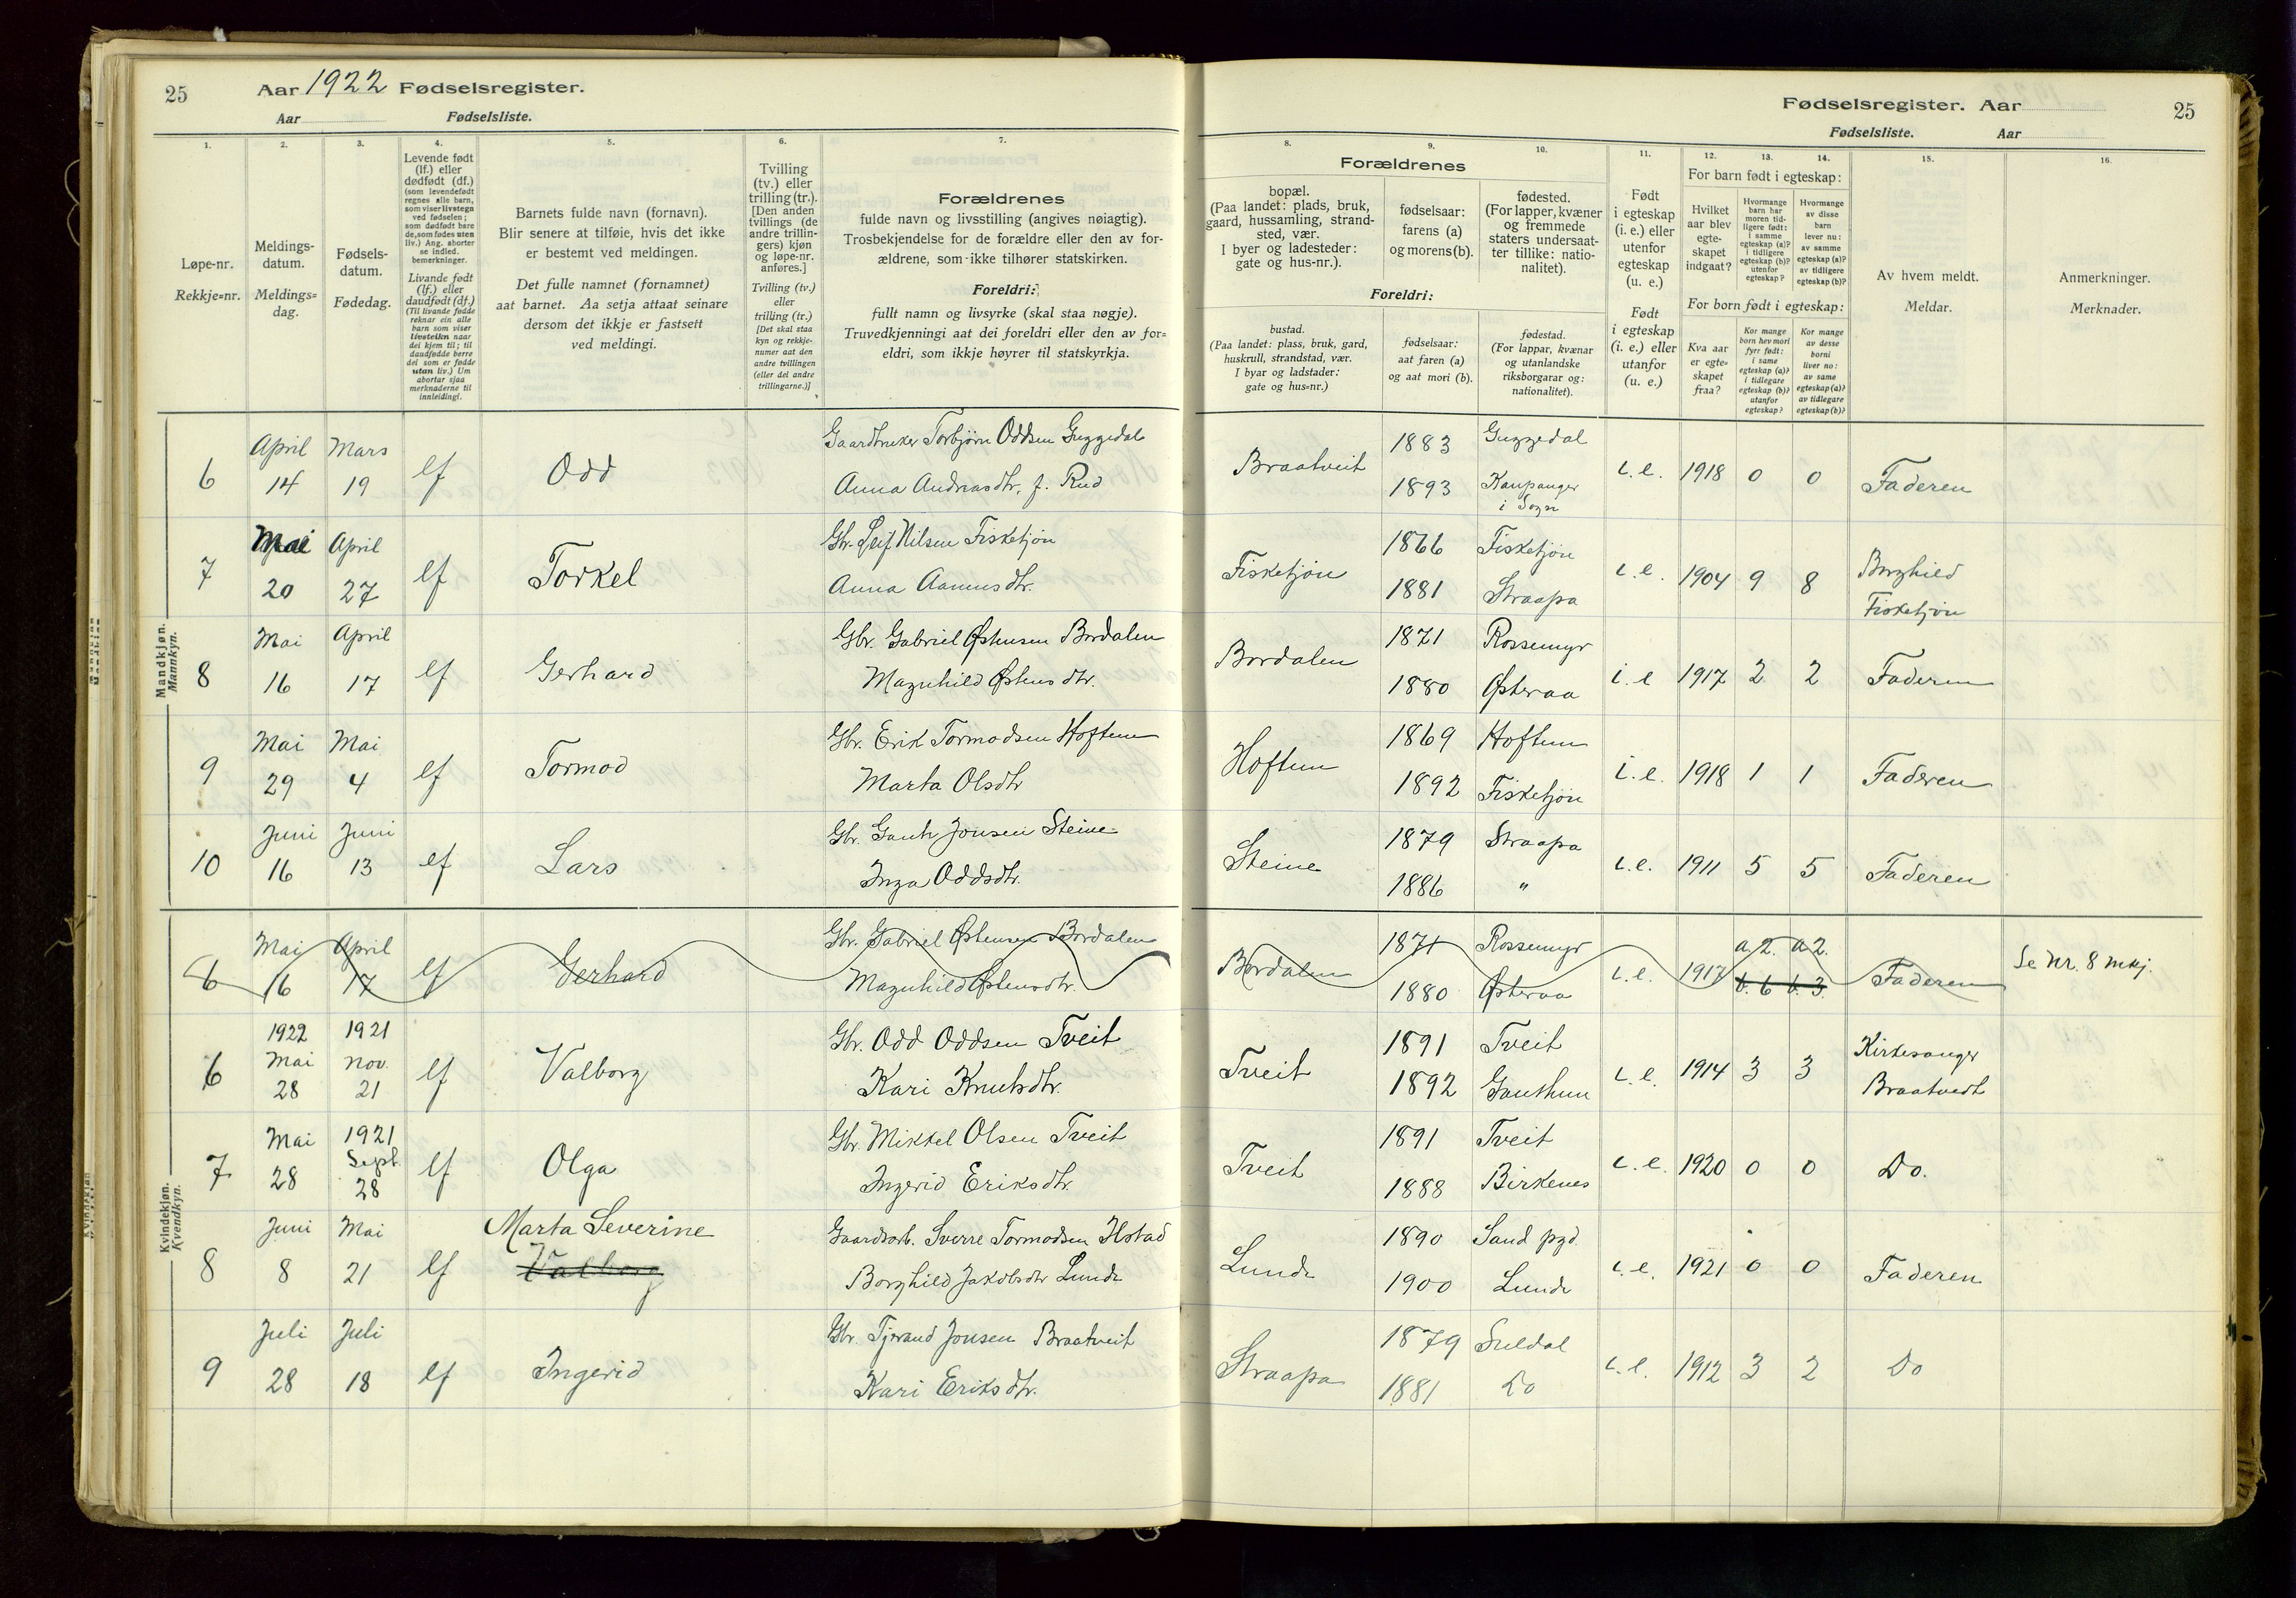 25 Aar 1922 Fødselsregister.
Aar Fødselsliste.
Fødselsregister. Aar 25
Fødselsliste. Aar
1. 2. 3. 4. 5. 6. 7. 8. 9. 10. 11. 12. 13. 14. 15. 16.
Løpe-nr.
Rekkje=nr.
Meldings-
datum.
Meldings=
dag.
Fødsels-
datum.
Fødedag.
Levende født
(lf.) eller
dødfødt (df.)
(som levendefødt
regnes alle barn,
som viser livstegn
ved fødselen;
som dødfødt bare
de, som fødes uten
liv.) Ang. aborter
se indled.
bemerkninger.
Livande født
(lf.) eller
daudfødt (df.)
(Til livande fødde
reknar ein alle
barn som viser
livsteikn naar
dei kjem til; til
daudfødde berre
dei som er fødde
utan liv.) Um
abortar sjaa
merknaderne til
innleidingi.
Barnets fulde navn (fornavn).
Blir senere at tilføie, hvis det ikke
er bestemt ved meldingen.
Det fulle namnet (fornamnet)
aat barnet. Aa setja attaat seinare
dersom det ikkje er fastsett
ved meldingi.
Tvilling
(tv.) eller
trilling (tr.).
[Den anden
tvillings (de
andre trillin-
gers) kjøn
og løpe-nr.
anføres.]
Tvilling (tv.)
eller
trilling (tr.)
[Det skal staa
kyn og rekkje-
numer aat den
andre tvillingen
(eller dei andre
trillingarne.)]
Forældrenes
fulde navn og livsstilling (angives nøiagtig).
Trosbekjendelse for de forældre eller den av for-
ældrene, som ikke tilhører statskirken.
Foreldri:
fullt namn og livsyrke (skal staa nøgje).
Truvedkjenningi aat dei foreldri eller den av for-
eldri, som ikkje høyrer til statskyrkja.
Forældrenes
bopæl.
(Paa landet: plads, bruk,
gaard, hussamling, strand-
sted, vær.
I byer og ladesteder:
gate og hus-nr.).
fødselsaar:
farens (a)
og morens (b).
fødested.
(For lapper, kvæner
og fremmede
staters undersaat-
ter tillike: natio-
nalitet).
Foreldri:
bustad.
(Paa landet: plass, bruk, gard,
huskrull, strandstad, vær.
I byar og ladstader:
gate og hus-nr.)
fødselsaar:
aat faren (a)
og aat mori (b).
fødestad.
(For lappar, kvænar
og utanlandske
riksborgarar og:
nationalitet).
Født
i egteskap
(i. e.) eller
utenfor
egteskap
(u. e.)
Født
i egteskap
(i. e.) eller
utanfor
(u. e.)
For barn født i egteskap:
Hvilket
aar blev
egte-
skapet
indgaat?
Hvormange
barn har
moren tid-
ligere født:
i samme
egteskap (a)?
i tidligere
egteskap (b)?
utenfor
egteskap?
Hvormange
av disse
barn
lever nu:
av samme
egteskap (a)?
av tidligere
egteskap (b)?
For born født i egteskap:
Kva aar
er egte-
skapet
fraa?
Kor mange
born hev mori
fyrr født:
i same
egteskap (a)?
i tidlegare
egteskap (b)?
utanfor
egteskap?
Kor mange
av desse
borni
liver no:
av same
egteskap (a)?
av tidlegare
egteskap (b)?
Av hvem meldt.
Meldar.
Anmerkninger.
Merknader.
Mandkjøn.
Mannkyn.
6 April 14 Mars 19 lf Odd Gaardbruker Torbjørn Oddsen Guggedal Braatveit 1883 Guggedal i.e. 1918 0 0 Faderen
Anna Andreasdtr, f. Rud 1893 Kaupanger i Sogn
7 Mai 20 April 27 lf Torkel Gbr. Leif Nilsen Fisketjøn Fisketjøn 1866 Fisketjøn i.e. 1904 9 8 Borghild Fisketjøn
Anna Aamundsdtr. 1881 Straapa
8 Mai 16 April 17 lf Gerhard Gbr. Gabriel Østensen Bordalen Bordalen 1871 Rossemyr i.e 1917 2 2 Faderen
Magnhild Østensdtr. 1880 Østeraa
9 Mai 29 Mai 4 lf Tormod Gbr. Erik Tormodsen Hoftun Hoftun 1869 Hoftun i.e. 1918 1 1 Faderen
Marta Olsdtr 1892 Fisketjøn
10 Juni 16 Juni 13 lf Lars Gbr. Gaut Jonsen Steine Steine 1879 Straapa i.e. 1911 5 5 Faderen
Inga Oddsdtr. 1886 "
Kvindekjøn.
Kvendkyn.
6 Mai 16 April 17 lf Gerhard Gbr. Gabriel Østensen Bordalen Bordalen 1871 Rossemyr i.e. 1917 a. 2. a 2. Faderen Se Nr. 8 mkj.
Magnhild Østensdtr. 1880 Østeraa b. 6 b. 3.
6 1922 Mai 28 1921 Nov. 21 lf Valborg Gbr. Odd Oddsen Tveit Tveit 1891 Tveit i.e. 1914 3 3 Kirkesanger Braatvedt
Kari Knutsdtr. 1892 Gauthun
7 Mai 28 1921 Sept. 28 lf Olga Gbr. Mikkel Olsen Tveit Tveit 1891 Tveit i.e. 1920 0 0 Do.
Ingerid Eriksdtr. 1888 Birkenes
8 Juni 8 Mai 21 lf Marta Severine Valborg Gaardsarb. Sverre Tormodsen Ilstad Lunde 1890 Sand pgd. i.e. 1921 0 0 Faderen
Borghild Jakobsdtr Lunde 1900 Lunde
9 Juli 28 Juli 18 lf Ingerid Gbr. Tjerand Jonsen Braatveit Straapa 1879 Suldal i.e. 1912 3 2 Do
Kari Eriksdtr. 1881 Do